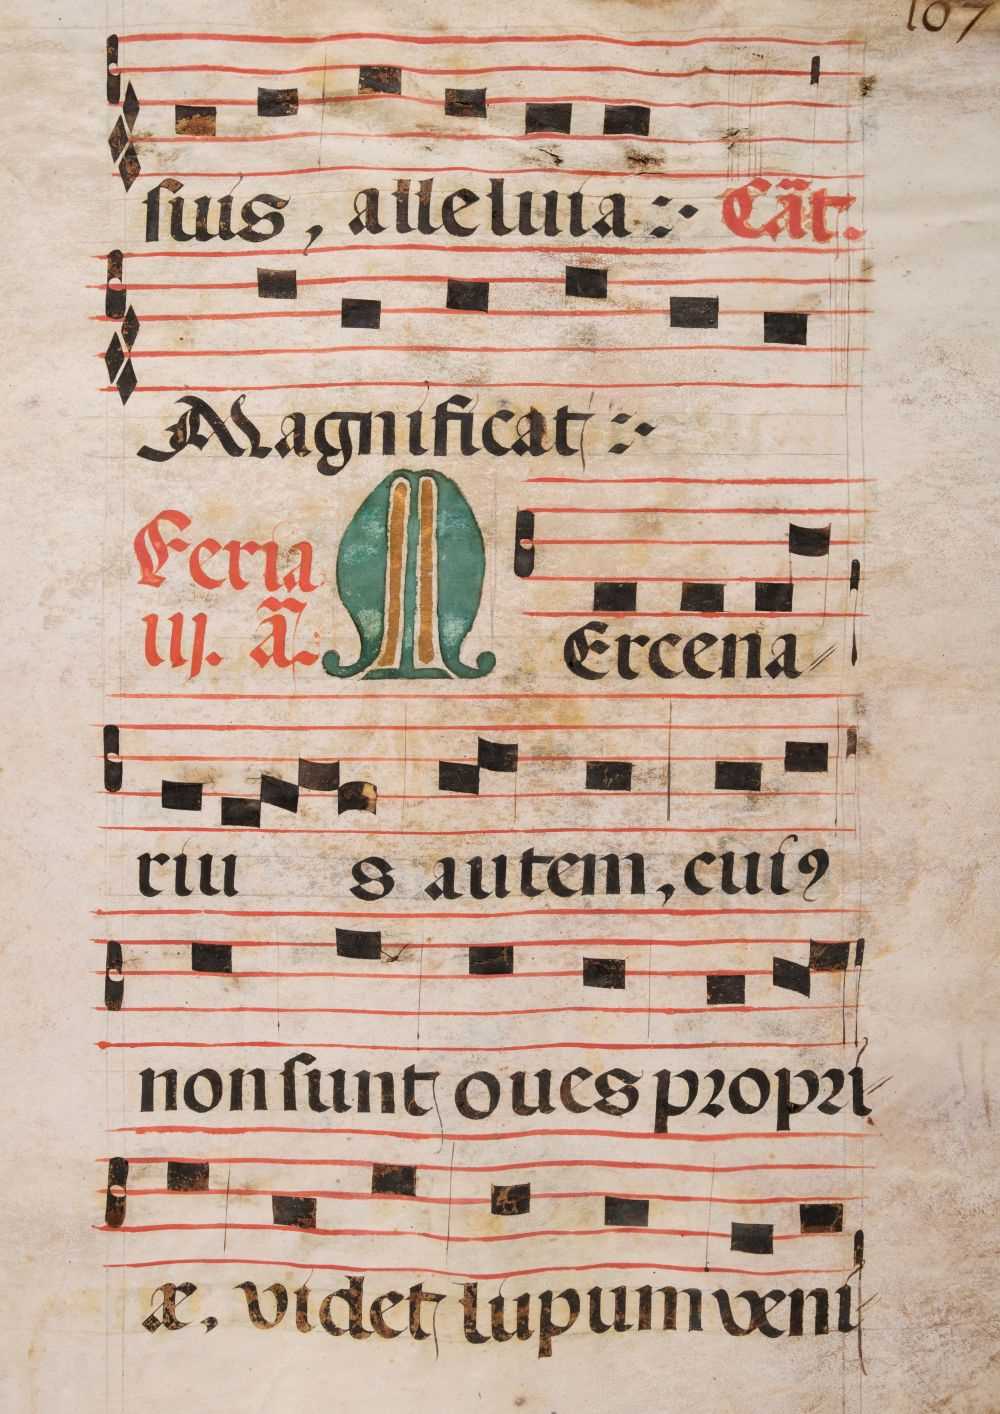 107
suis, alleluia: Cãt.
Magnificat:
Feria
iij. ã.
M Ercena
riu s autem, cuiꝰ
non sunt oues propri
æ, videt lupum veni